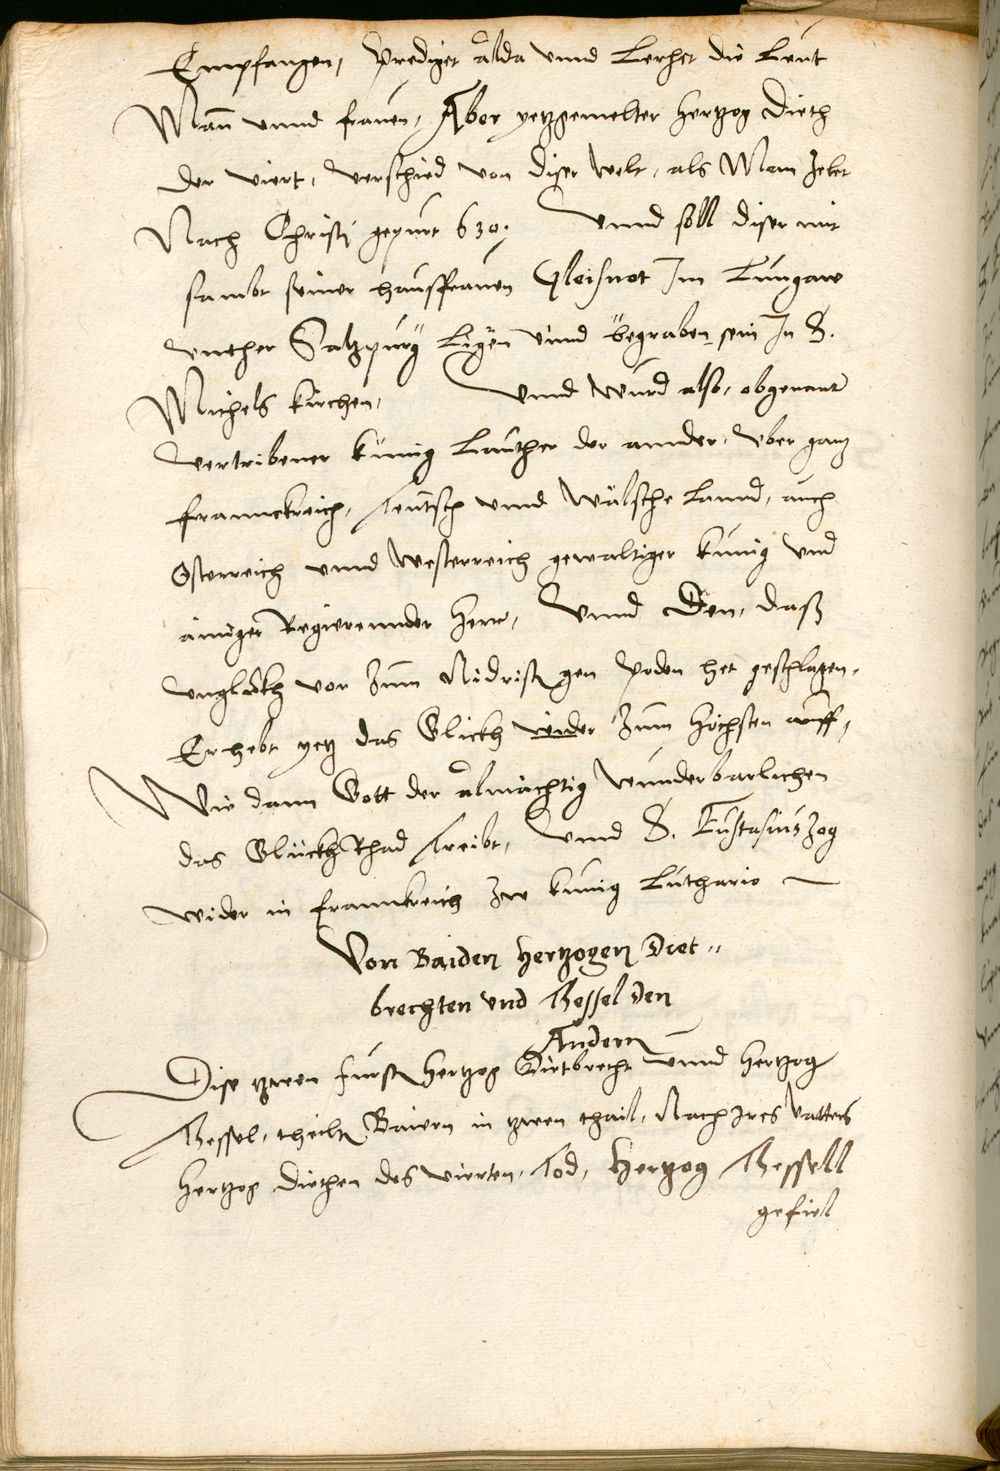 Empfangen, Prediget alda vnnd Lerhet die Leut
Mann vnnd frauen, Aber yetzgemelter Hertzog Dieth
der viert, verschied von diser welt, als Man zelet
Nach Christi gepurt 630. vnnd soll diser mit
sambt seiner hausfrauen Gleisnot Im Lungaw
vnther Saltzpurg Ligen vnnd begraben sein In S.
Michels kirchen, vnnd wurd also, obgenant
vertribener künig Lauther der ander, vber gantz
Frannckreich, teutsch vnnd wälsche Lannd, auch
Osterreich vnnd westerreich gewaltiger künig vnd
ainiger Regierennder Herr, vnnd Den, daß
vnglückh vor zum Nidristen gen poden het geschlagen,
Erhebt yetz das Glückh wider zum höchsten auff,
Wie dann Gott der almächtig wunderbarlichen
das Glückh Rhad treibt, vnnd S. Eustasius zog
wider in frannkreich zw künig Luthario
Von Baiden Hertzogen Diet
brechten vnd Thessel den
Andern
Dise tzwen fürsten Hertzog Dietbrecht vnnd Hertzog
Thessel, theilten Bairen in tzwen thail, Nach Ires Vatters
Hertzog Diethen des vierten, Tod, Hertzog Thessell
gefiel